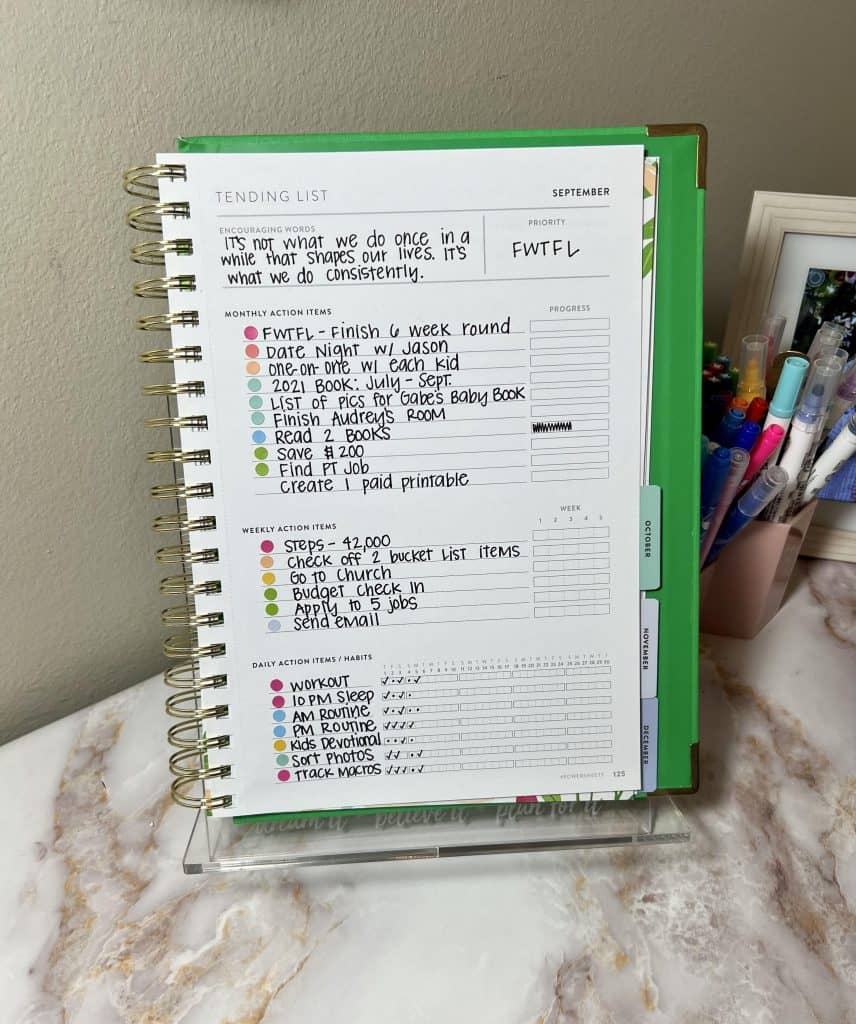 TENDING LIST
SEPTEMBER
ENCOURAGING WORDS
IT'S NOT WHAT WE DO ONCE IN A
WHILE THAT SHAPES OUR LIVES. IT'S
WHAT WE DO CONSISTENTLY.
PRIORITY
FWTFL
MONTHLY ACTION ITEMS
PROGRESS
FWTFL - FINISH 6 WEEK ROUND
DATE NIGHT W/ JASON
ONE-ON-ONE W/ EACH KID
2021 BOOK: JULY - SEPT.
LIST OF PICS FOR GABE'S BABY BOOK
FINISH AUDREY'S ROOM
READ 2 BOOKS
SAVE $200
FIND PT JOB
CREATE 1 PAID PRINTABLE
WEEKLY ACTION ITEMS
WEEK
1 2 3 4 5
STEPS - 42,000
CHECK OFF 2 BUCKET LIST ITEMS
GO TO CHURCH
BUDGET CHECK IN
APPLY TO 5 JOBS
SEND EMAIL
DAILY ACTION ITEMS / HABITS
T F S S M T W T F S S M T W T F S S M T W T F S S M T W T F
1 2 3 4 5 6 7 8 9 10 11 12 13 14 15 16 17 18 19 20 21 22 23 24 25 26 27 28 29 30
WORKOUT
10 PM SLEEP
AM ROUTINE
PM ROUTINE
KIDS DEVOTIONAL
SORT PHOTOS
TRACK MACROS
#POWERSHEETS 125
OCTOBER
NOVEMBER
DECEMBER
dream it believe it plan for it